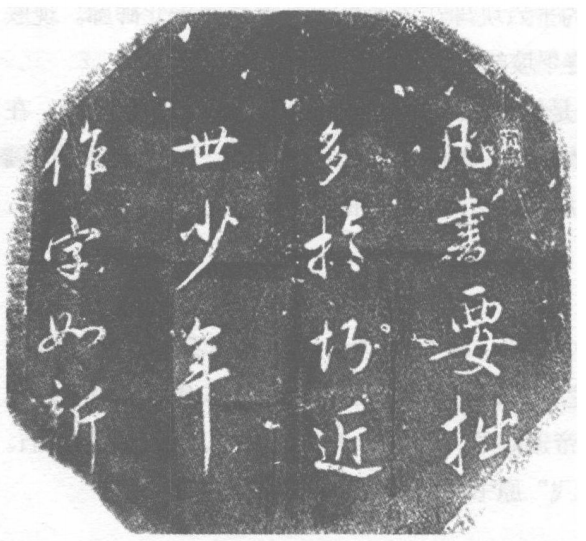 凡書要拙
多於巧近
世少年
作字如新